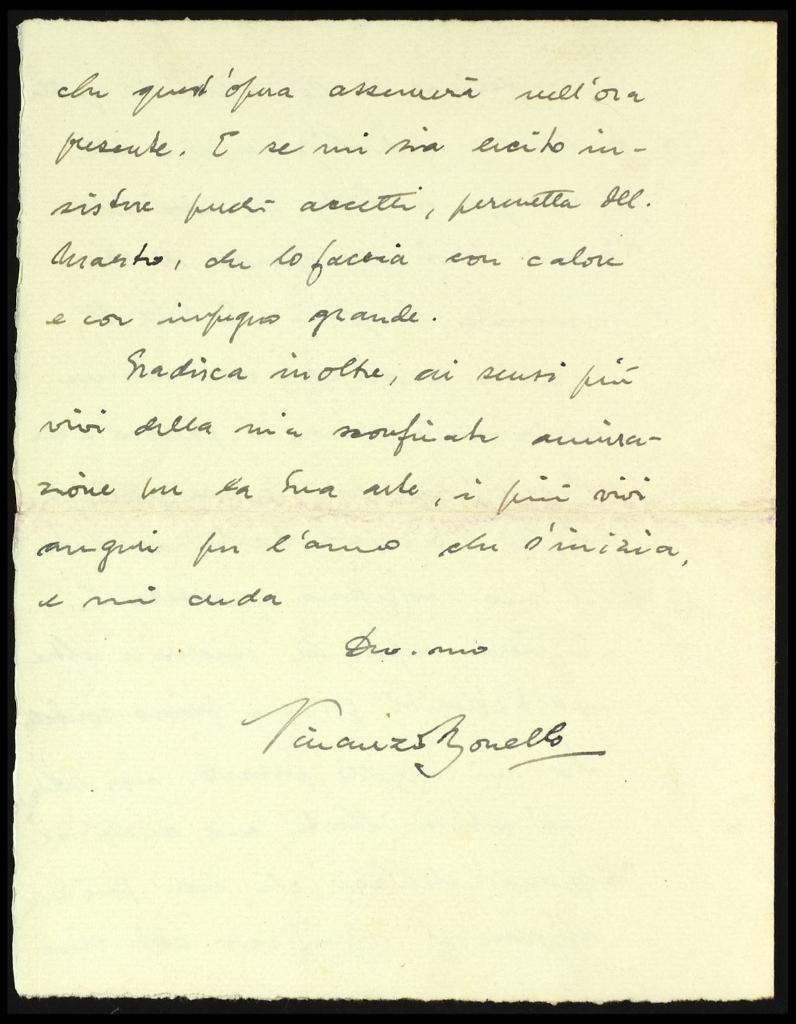 che quest'opera assumerà nell'ora
presente. E se mi sia lecito in-
sistere perchè accetti, permetta Ill.
Maestro, che lo faccia con calore
e con impegno grande.
Gradisca inoltre, ai sensi più
vivi della mia sconfinata ammira-
zione per la Sua arte, i più vivi
auguri per l'anno che s'inizia,
e mi creda
Dev.mo
Vincenzo Bonello